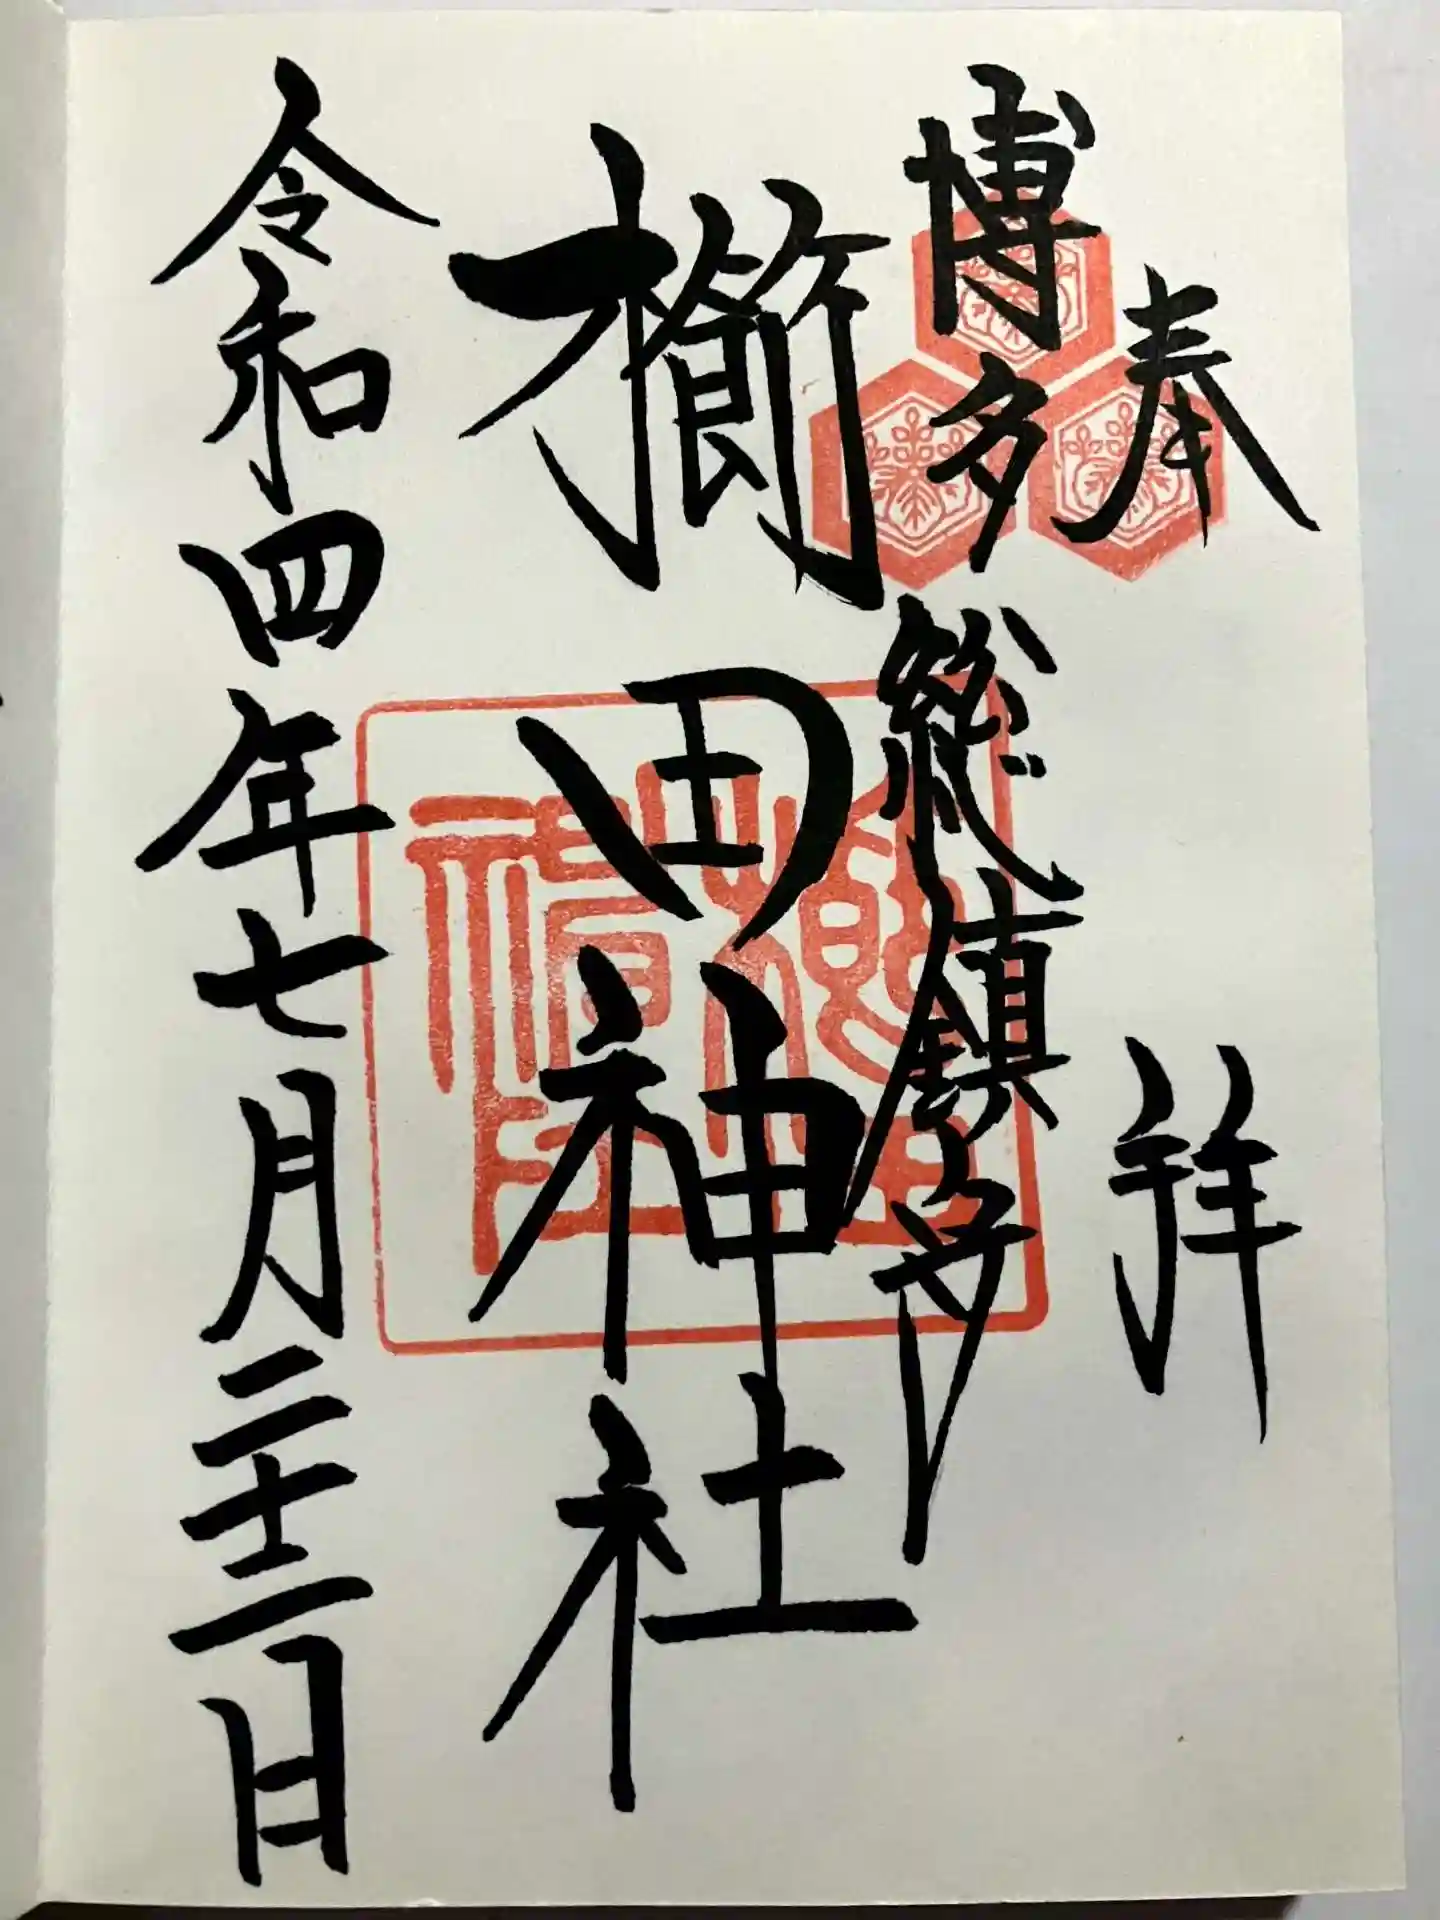 奉拝
博多総鎮守
櫛田神社
令和四年七月二十一日